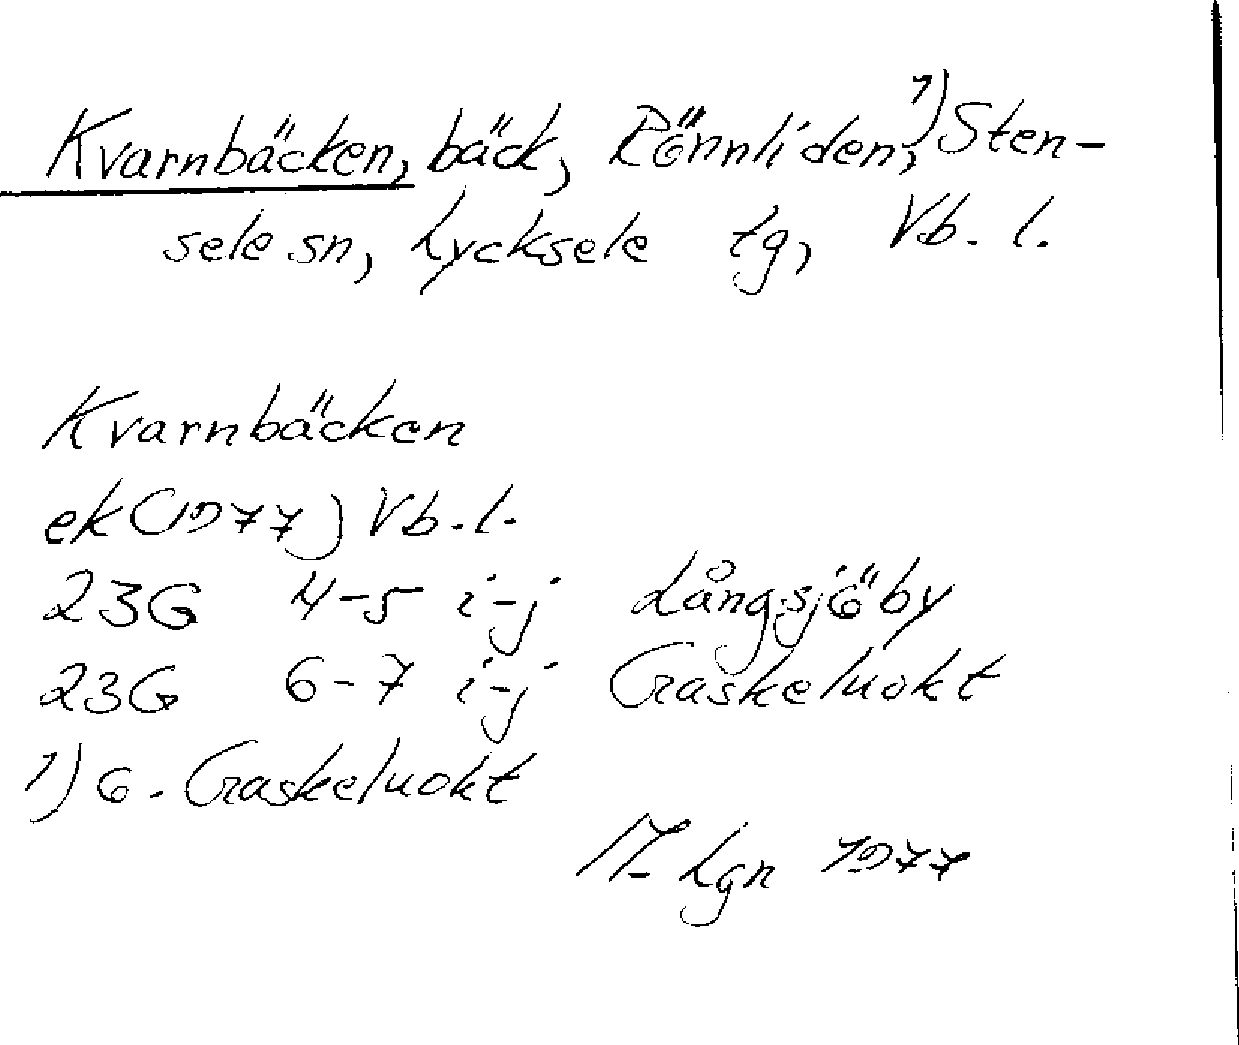 Kvarnbäcken, bäck, Rönnliden,¹) Sten-
sele sn, Lycksele tg, Vb. l.
Kvarnbäcken
ek (1977) Vb. l.
23G 4-5 i-j Långsjöby
23G 6-7 i-j Gaskeluokt
1) G. Gaskeluokt
M. Lgn 1977